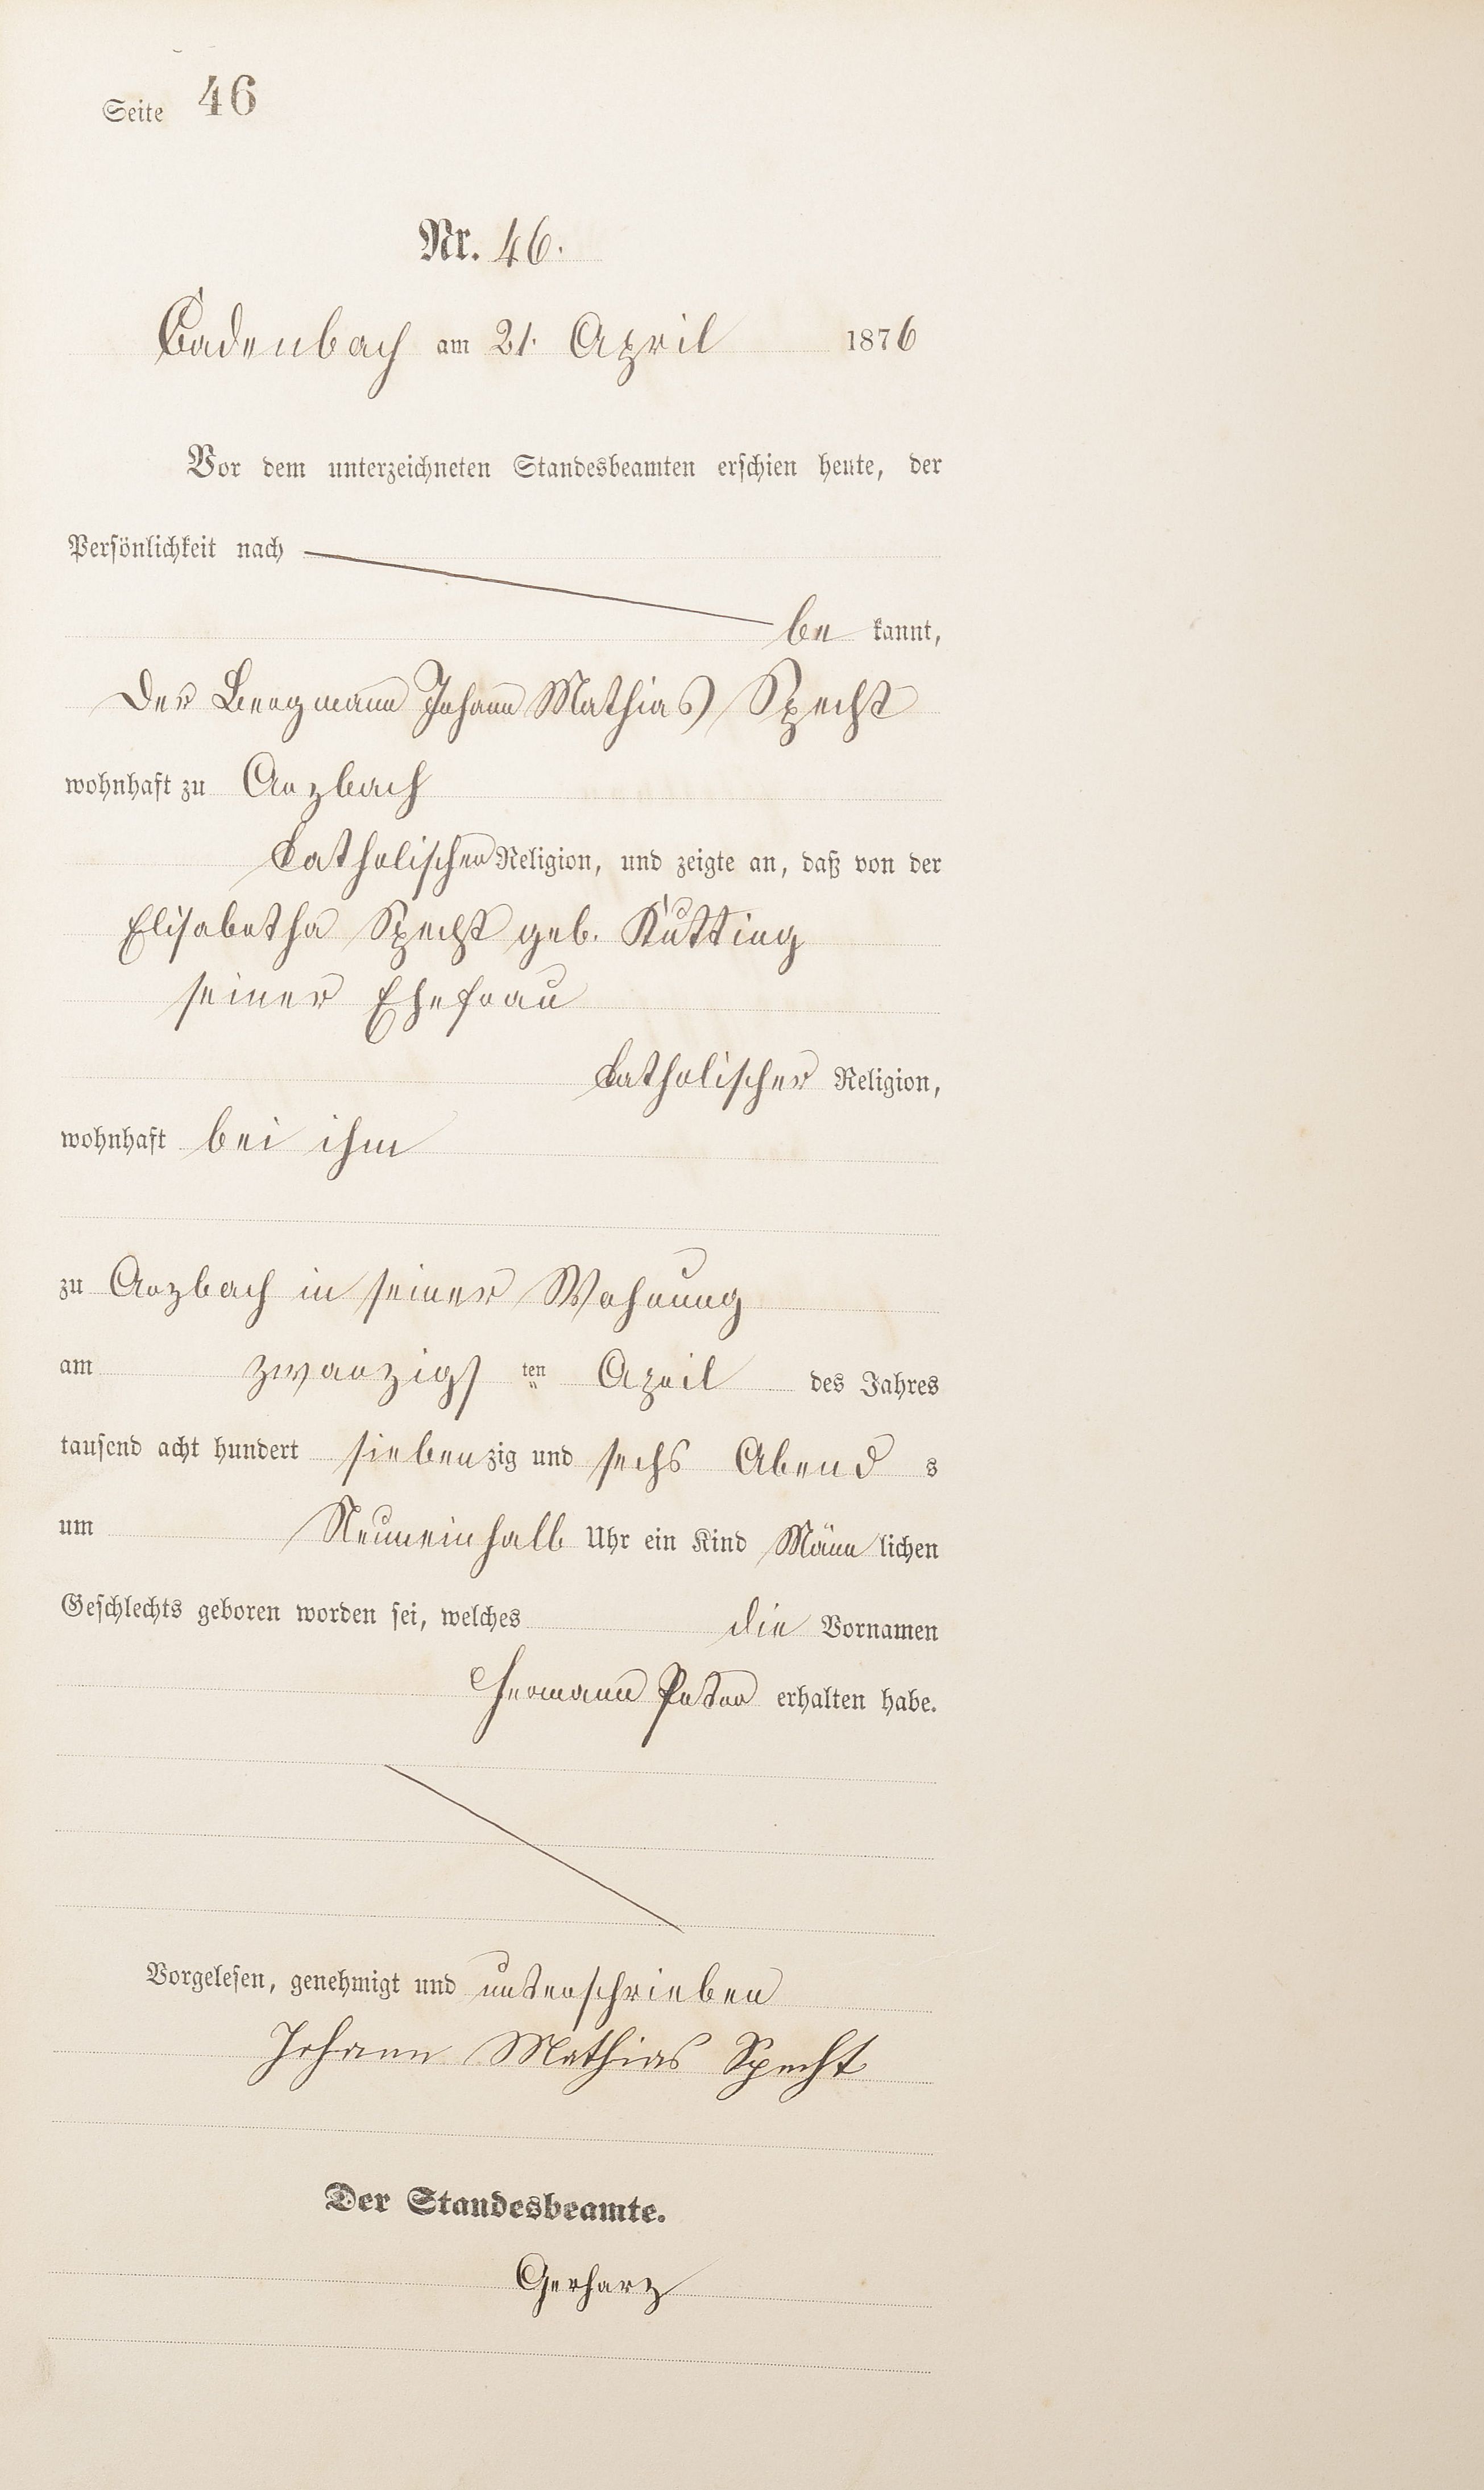 Seite 46
Nr. 46.
Cadenbach am 21. April 1876
Vor dem unterzeichneten Standesbeamten erschien heute, der
Persönlichkeit nach
be kannt,
Der Bergmann Johann Mathias Specht
wohnhaft zu Arzbach
katholischer Religion, und zeigte an, daß von der
Elisabetha Specht geb. Kutting
seiner Ehefrau
katholischer Religion,
wohnhaft bei ihm
zu Arzbach in seiner Wohnung
am zwanzigs ten April des Jahres
tausend acht hundert siebenzig und sechs Abend s
um Neuneinhalb Uhr ein Kind Männ lichen
Geschlechts geboren worden sei, welches die Vornamen
Hermann Peter erhalten habe.
Vorgelesen, genehmigt und unterschrieben
Johann Mathias Specht
Der Standesbeamte.
Gerharz